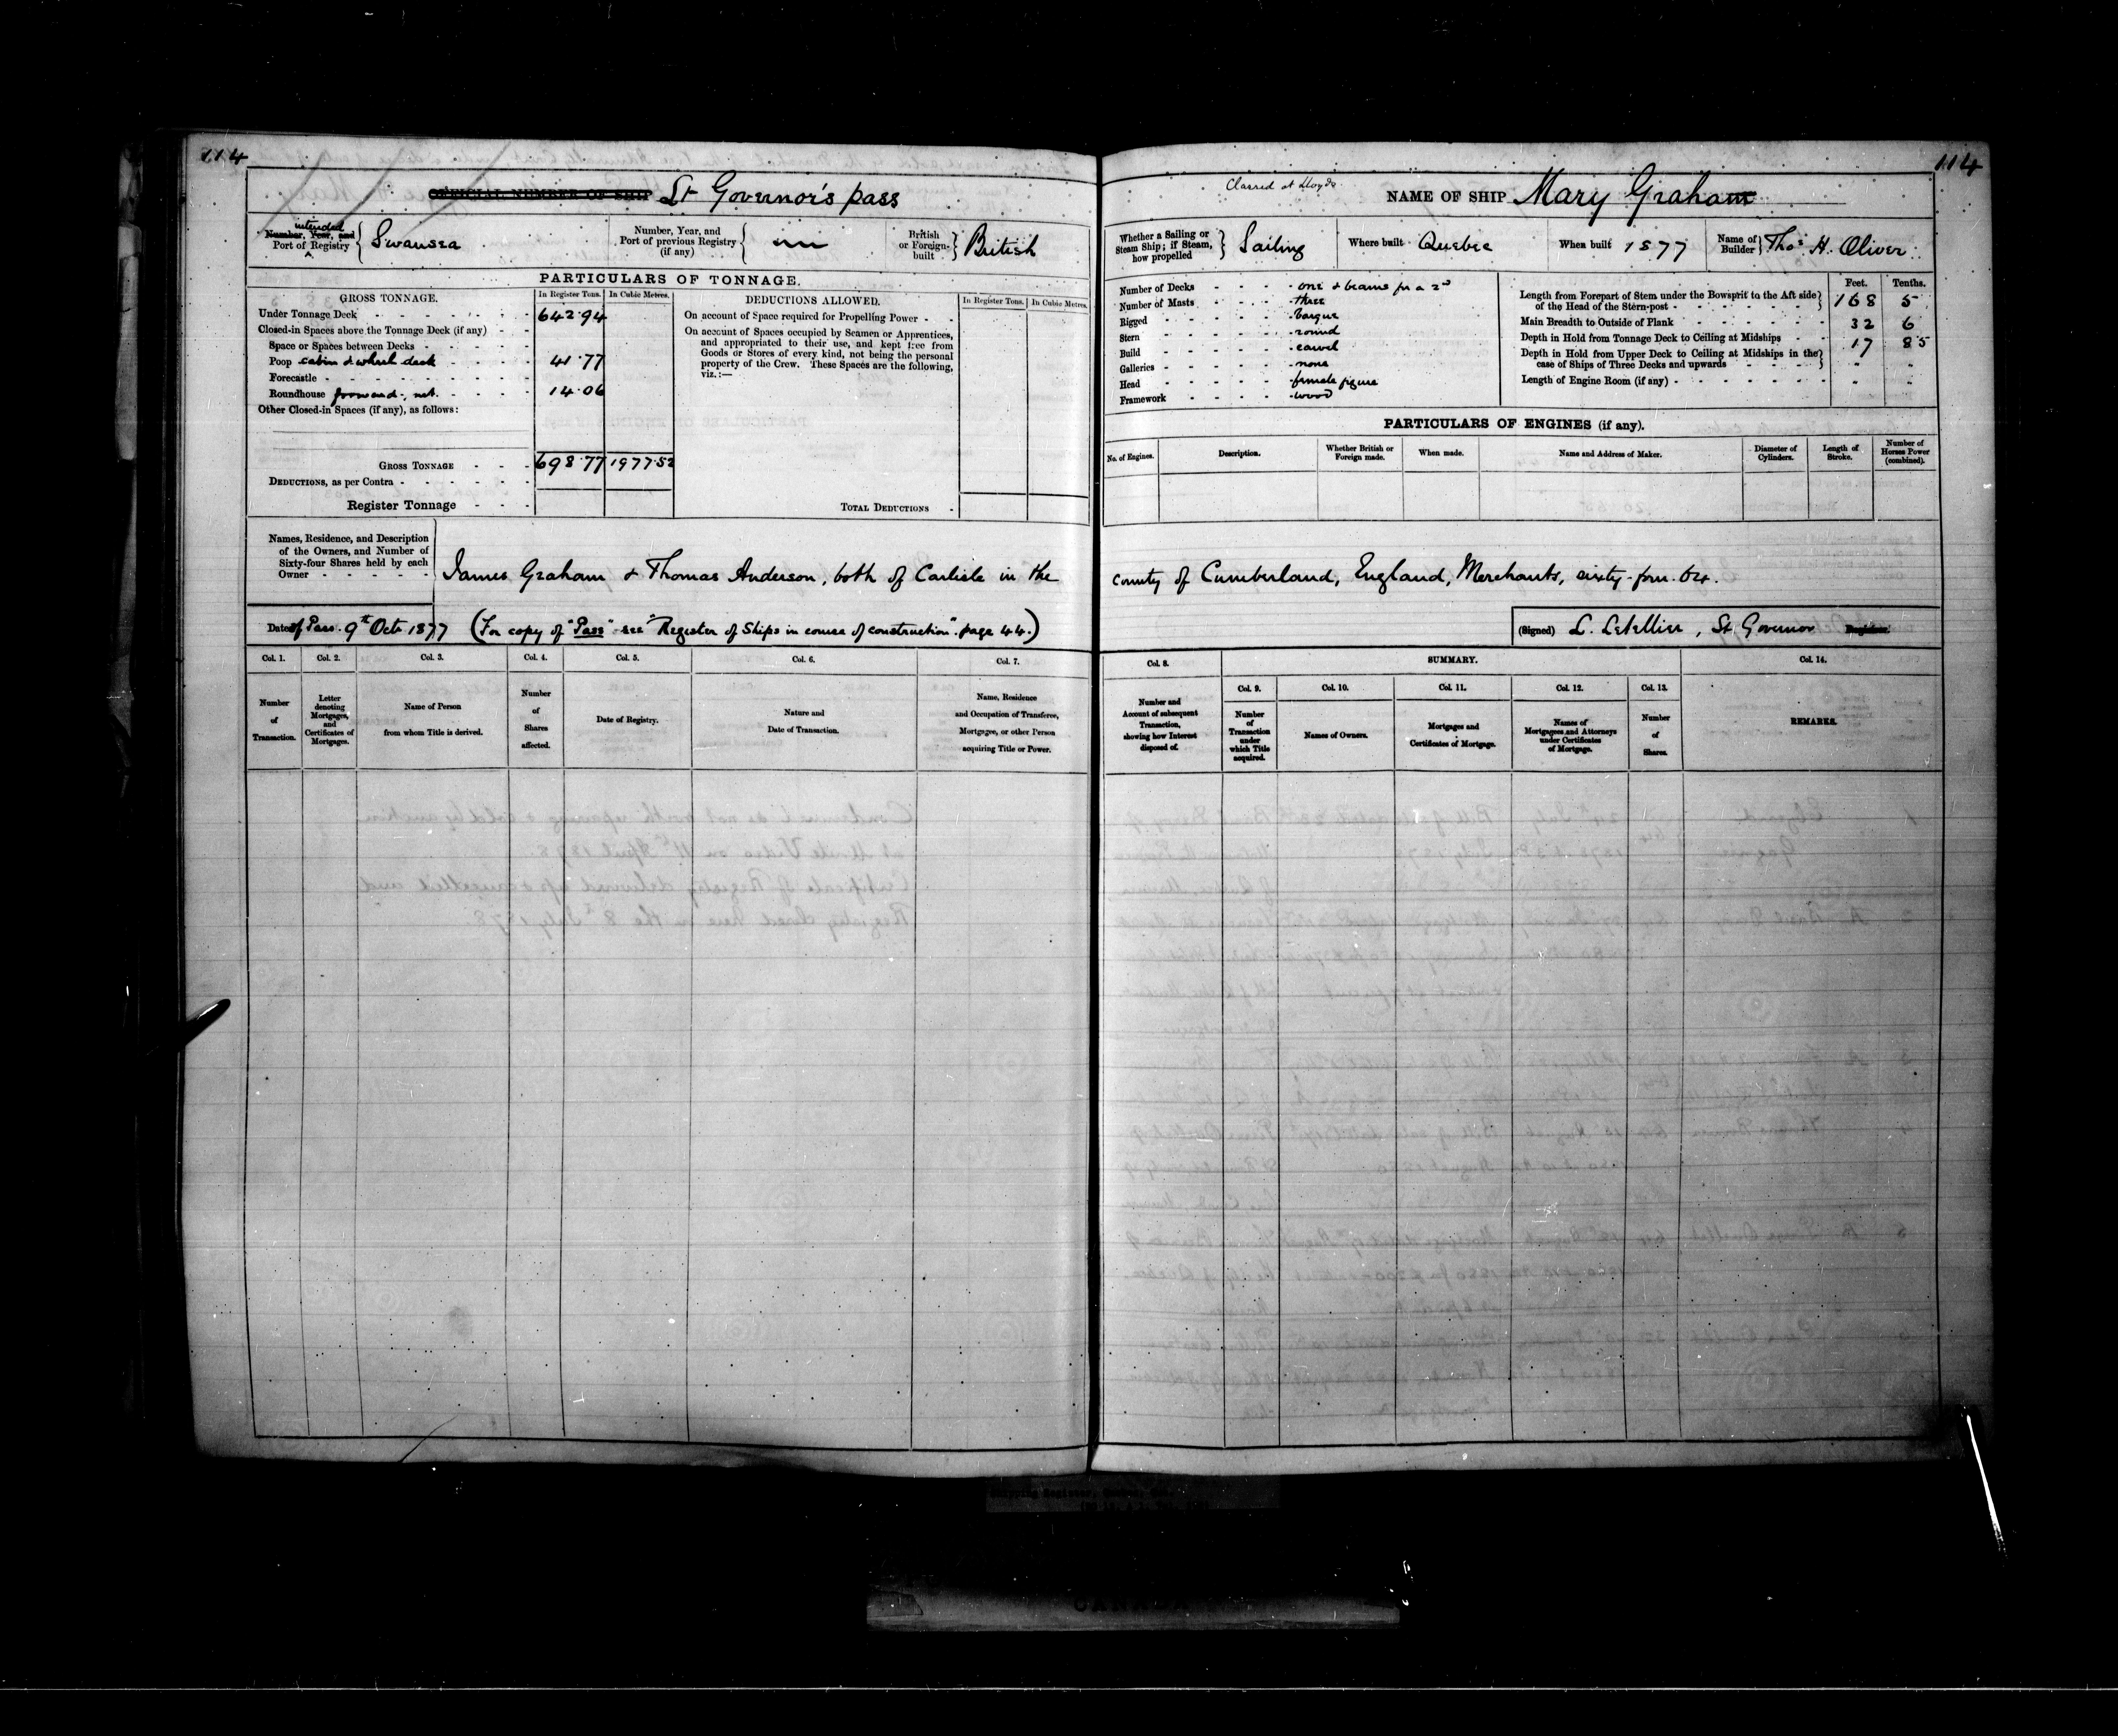 114
114
OFFICIAL NUMBER OF SHIP Lt Governor's pass
intended
Number, Year, and
Port of Registry
Swansea
Number, Year, and
Port of previous Registry
(if any)
British
or Foreign-
built
British
PARTICULARS OF TONNAGE.
GROSS TONNAGE.
In Register Tons.
In Cubic Metres.
DEDUCTIONS ALLOWED.
In Register Tons.
In Cubic Metres.
Under Tonnage Deck 642.94
Closed-in Spaces above the Tonnage Deck (if any)
Space or Spaces between Decks
Poop cabin & wheel deck 41.77
Forecastle
Roundhouse forward, 14.06
Other Closed-in Spaces (if any), as follows:
GROSS TONNAGE 698.77 1977.52
DEDUCTIONS, as per Contra
Register Tonnage
On account of Space required for Propelling Power
On account of Spaces occupied by Seamen or Apprentices,
and appropriated to their use, and kept free from
Goods or Stores of every kind, not being the personal
property of the Crew. These Spaces are the following,
viz.:—
TOTAL DEDUCTIONS
Names, Residence, and Description
of the Owners, and Number of
Sixty-four Shares held by each
Owner
James Graham & Thomas Anderson, both of Carlisle in the
Date of Pass. 9th Octr 1877 (For copy of "Pass" see "Register of Ships in course of construction" page 44.)
Col. 1.
Col. 2.
Col. 3.
Col. 4.
Col. 5.
Col. 6.
Col. 7.
Number
of
Transaction.
Letter
denoting
Mortgages,
and
Certificates of
Mortgages.
Name of Person
from whom Title is derived.
Number
of
Shares
affected.
Date of Registry.
Nature and
Date of Transaction.
Name, Residence
and Occupation of Transferee,
Mortgagee, or other Person
acquiring Title or Power.
Classed at Lloyds
NAME OF SHIP Mary Graham
Whether a Sailing or
Steam Ship; if Steam,
how propelled
Sailing
Where built Quebec
When built 1877
Name of
Builder
Thos H. Oliver
Number of Decks one & beams for a 2d
Number of Masts three
Rigged barque
Stern round
Build carvel
Galleries none
Head female figure
Framework wood
Feet. Tenths.
Length from Forepart of Stem under the Bowsprit to the Aft side
of the Head of the Stern-post 168 5
Main Breadth to Outside of Plank 32 6
Depth in Hold from Tonnage Deck to Ceiling at Midships 17 85
Depth in Hold from Upper Deck to Ceiling at Midships in the
case of Ships of Three Decks and upwards " "
Length of Engine Room (if any) " "
PARTICULARS OF ENGINES (if any).
No. of Engines.
Description.
Whether British or
Foreign made.
When made.
Name and Address of Maker.
Diameter of
Cylinders.
Length of
Stroke.
Number of
Horses Power
(combined).
county of Cumberland, England, Merchants, sixty-four. 64.
(Signed) L. Letellier, Lt Governor Registrar.
Col. 8.
SUMMARY.
Col. 14.
Col. 9.
Col. 10.
Col. 11.
Col. 12.
Col. 13.
Number and
Account of subsequent
Transaction,
showing how Interest
disposed of.
Number
of
Transaction
under
which Title
acquired.
Names of Owners.
Mortgages and
Certificates of Mortgage.
Names of
Mortgagees and Attorneys
under Certificates
of Mortgage.
Number
of
Shares.
REMARKS.